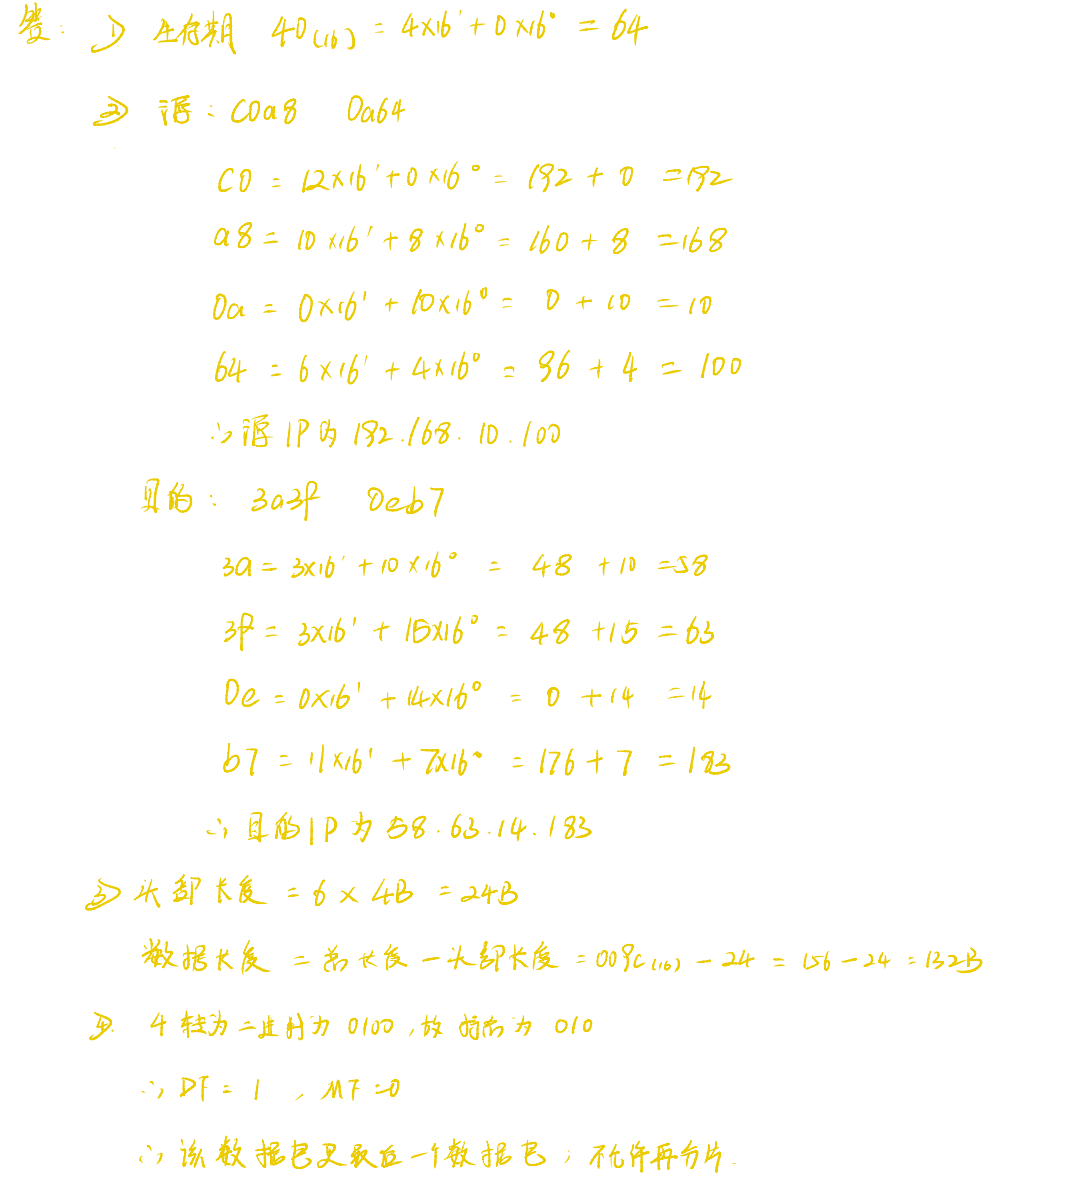 答: ① 生存期 40(16) = 4×16¹+0×16⁰ = 64
② 源: C0a8 0a64
C0 = 12×16¹+0×16⁰ = 192 + 0 =192
a8 = 10×16¹+8×16⁰ = 160+8 =168
0a = 0×16¹+10×16⁰ = 0+10 =10
64 = 6×16¹+4×16⁰ = 96+4 = 100
∴ 源IP为 192.168.10.100
目的: 3a3f 0eb7
3a = 3×16¹+10×16⁰ = 48 +10 =58
3f = 3×16¹+15×16⁰ = 48 +15 =63
0e = 0×16¹+14×16⁰ = 0 +14 =14
b7 = 11×16¹+7×16⁰ = 176+7 = 183
∴ 目的IP为 58.63.14.183
③ 头部长度 = 6×4B =24B
数据长度 = 总长度-头部长度 =009c(16) - 24 = 156-24 =132B
④. 4转为二进制为 0100,故标志为 010
∴ DF= 1 , MF=0
∴ 该数据包是最后一个数据包,不允许再分片.